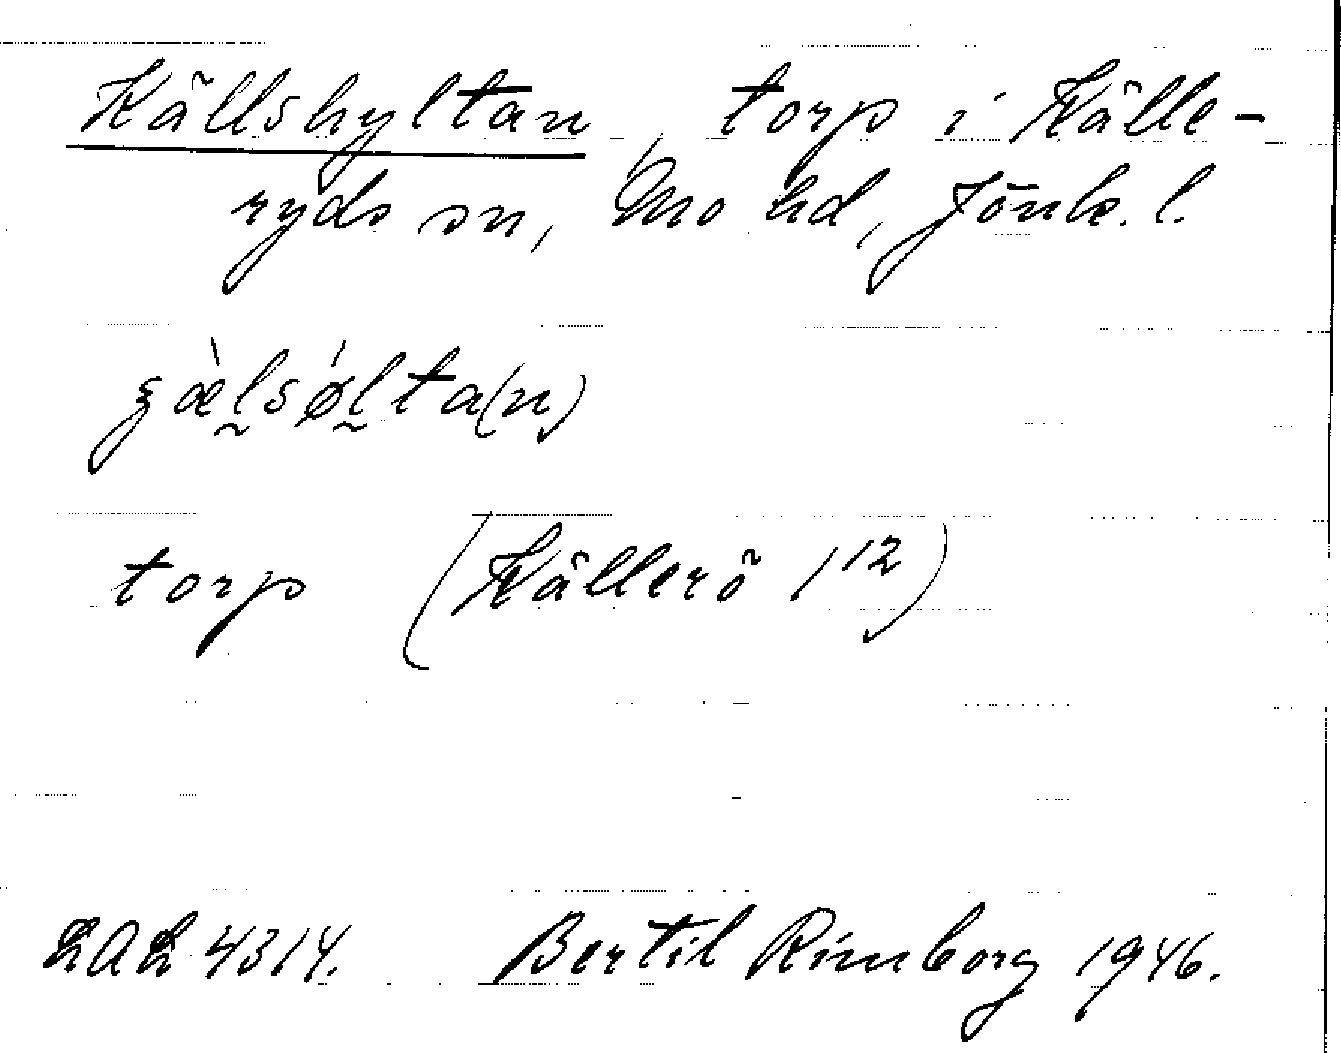 Källshyltan, torp i Kålle-
ryds sn, Mo hd, Jönk. l.
torp (Kållerö 1¹²)
LAL 4314. Bertil Rimborg 1946.